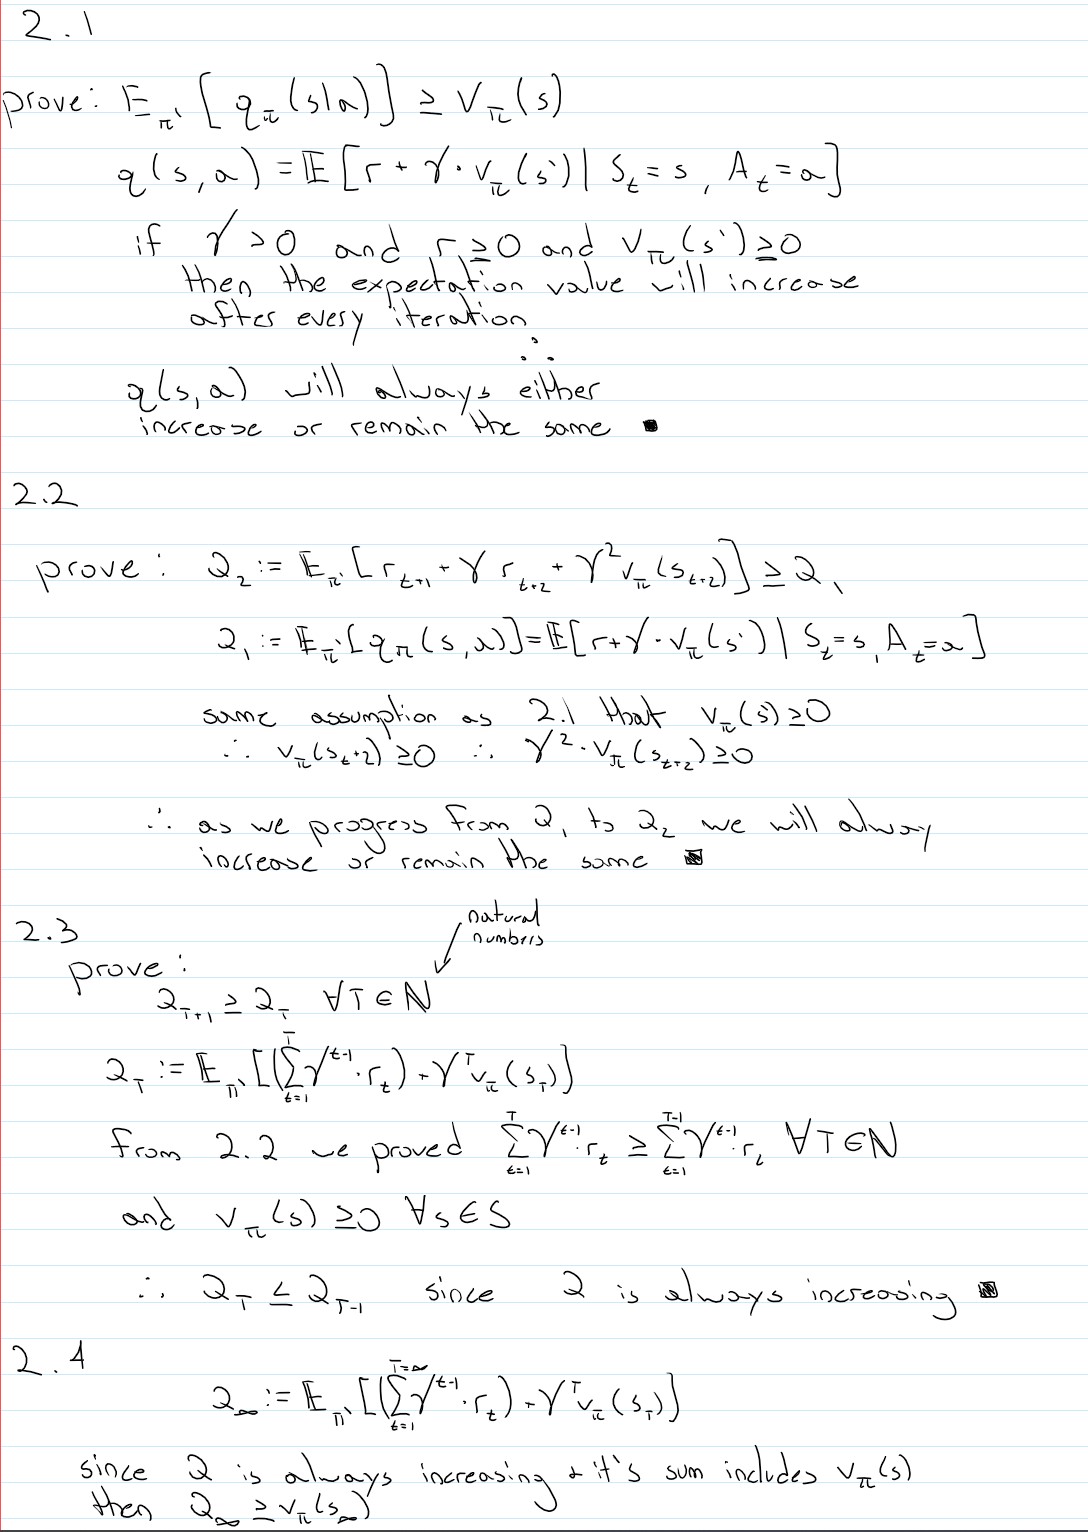 2.1
prove: 𝔼_π' [q_π(s|a)] ≥ V_π(s)
q(s,a) = 𝔼[r + γ·v_π(s') | S_t = s, A_t = a]
if γ > 0 and r ≥ 0 and v_π(s') ≥ 0
then the expectation value will increase
after every iteration
∴
q(s,a) will always either
increase or remain the same ■
2.2
prove: Q_2 := 𝔼_π'[r_{t+1} + γ r_{t+2} + γ^2 v_π(s_{t+2})] ≥ Q_1
Q_1 := 𝔼_π'[q_π(s,a)] = 𝔼[r + γ·v_π(s') | S_t = s, A_t = a]
same assumption as 2.1 that v_π(s') ≥ 0
∴ v_π(s_{t+2}) ≥ 0 ∴ γ^2·v_π(s_{t+2}) ≥ 0
∴ as we progress from Q_1 to Q_2 we will always
increase or remain the same ■
natural
numbers
2.3
prove:
Q_{T+1} ≥ Q_T ∀T∈ℕ
Q_T := 𝔼_π'[(∑_{t=1}^{T} γ^{t-1}·r_t) + γ^T v_π(s_T)]
From 2.2 we proved ∑_{t=1}^{T} γ^{t-1}·r_t ≥ ∑_{t=1}^{T-1} γ^{t-1}·r_t ∀T∈ℕ
and v_π(s) ≥ 0 ∀s∈S
∴ Q_T ≤ Q_{T-1} since Q is always increasing ■
2.4
Q_∞ := 𝔼_π'[(∑_{t=1}^{T=∞} γ^{t-1}·r_t) + γ^T v_π(s_T)]
since Q is always increasing + it's sum includes v_π(s)
then Q_∞ ≥ v_π(s_∞)